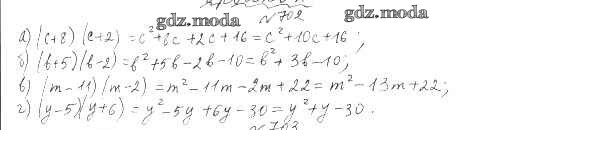 gdz.moda
№702
gdz.moda
а) (c+8)(c+2) = c²+8c+2c+16 = c²+10c+16;
б) (b+5)(b-2) = b²+5b-2b-10 = b²+3b-10;
в) (m-11)(m-2) = m²-11m-2m+22 = m²-13m+22;
г) (y-5)(y+6) = y²-5y+6y-30 = y²+y-30.
№703